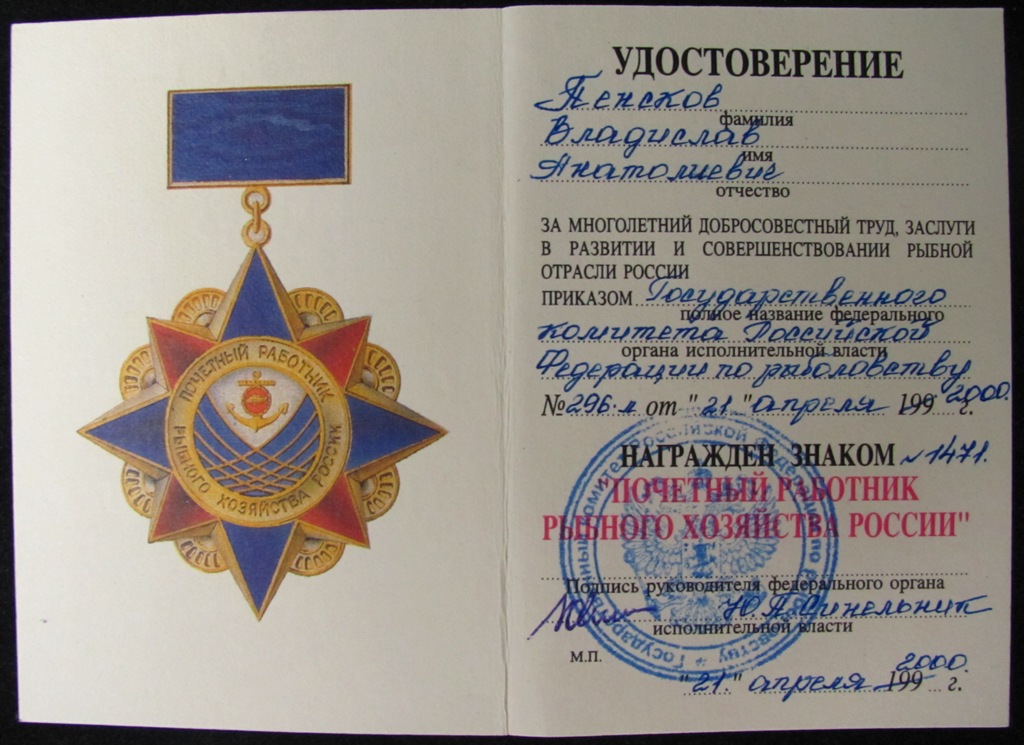 ПОЧЕТНЫЙ РАБОТНИК
РЫБНОГО ХОЗЯЙСТВА РОССИИ
УДОСТОВЕРЕНИЕ
Пенсков
фамилия
Владислав
имя
Анатолиевич
отчество
ЗА МНОГОЛЕТНИЙ ДОБРОСОВЕСТНЫЙ ТРУД, ЗАСЛУГИ
В РАЗВИТИИ И СОВЕРШЕНСТВОВАНИИ РЫБНОЙ
ОТРАСЛИ РОССИИ
ПРИКАЗОМ Государственного
полное название федерального
комитета Российской
органа исполнительной власти
Федерации по рыболовству
№ 296-л от "21" апреля 199 2000 г.
НАГРАЖДЕН ЗНАКОМ № 1471.
"ПОЧЕТНЫЙ РАБОТНИК
РЫБНОГО ХОЗЯЙСТВА РОССИИ"
Подпись руководителя федерального органа
Ю.П. Синельник
исполнительной власти
М.П.
"21" апреля 199 2000 г.
Государственный комитет Российской Федерации по рыболовству